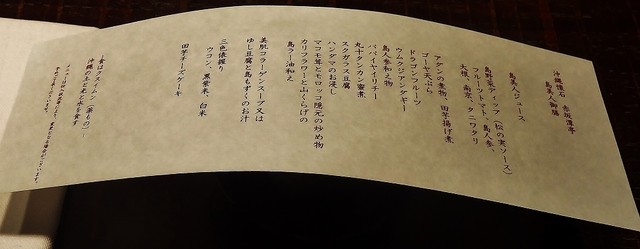 沖縄懐石　赤坂潭亭
島美人御膳
島美人ジュース
島野菜ディップ（松の実ソース）
フルーツトマト、島人参、
大根、南京、タニワタリ
アダンの煮物、田芋揚げ煮
ゴーヤ天ぷら
ドラゴンフルーツ
ウムクジアンダギー
島人参和え物
パパイヤイリチー
丸十タンカン蜜煮
スクガラス豆腐
ハンダマのお浸し
マコモ茸とモロッコ隠元の炒め物
カリフラワーと山くらげの
島ラー油和え
美肌コラーゲンスープ又は
ゆし豆腐と島もずくのお汁
三色俵握り
ウコン、黒紫米、白米
田芋チーズケーキ
～食はクスイムン（薬もの）～
沖縄の土と光と水を食す